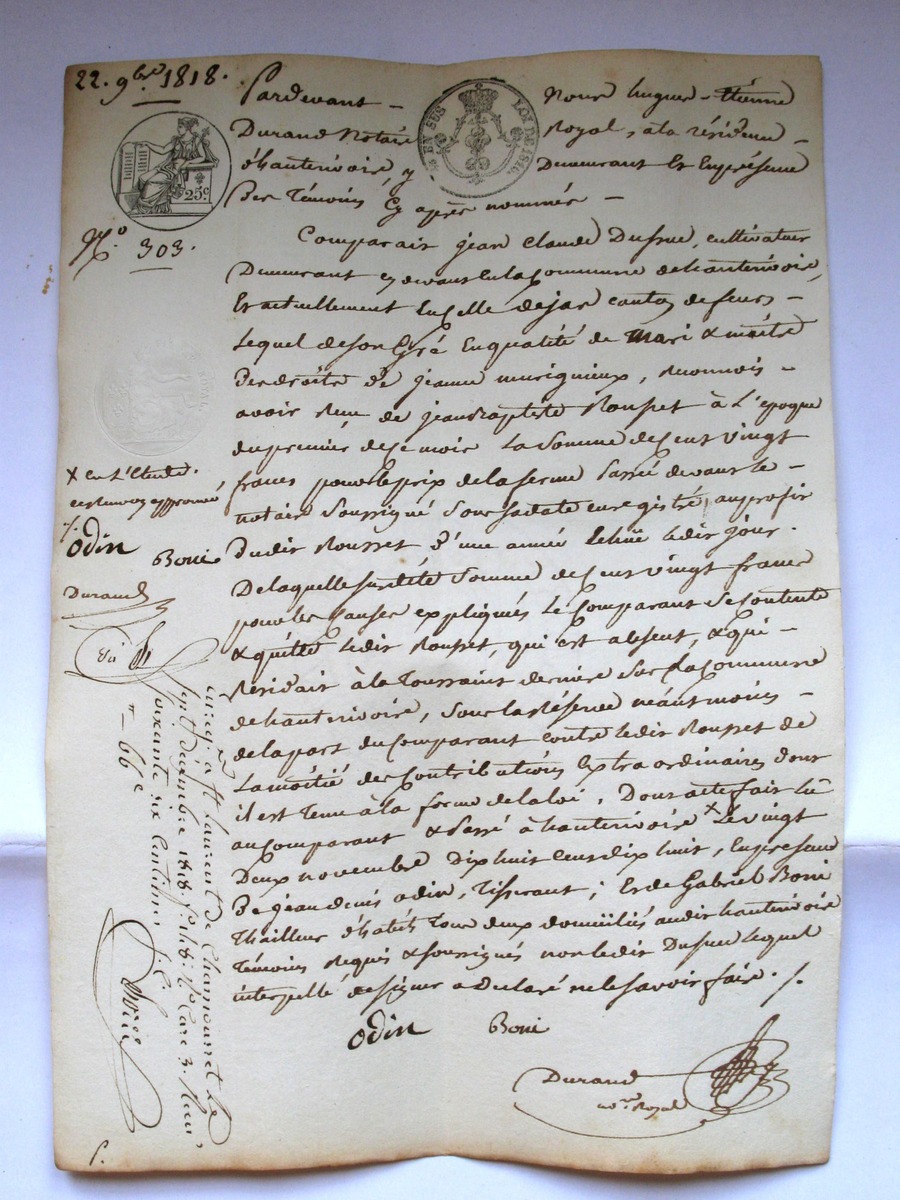 22. 9bre 1818.
Pardevant - Nous hugues - Etienne
Durand Notaire Royal, à la résidence
d'hauterivoire, y Demeurant Et En présence
Des Témoins Cy après nommés -
EN SUS
LOI DE 1816.
25c.
No 303.
Comparait jean Claude Dufrue, cultivateur
Demeurant cy devant En la Commune de hauterivoire,
Et actuellement En Celle de jas canton de feurs -
Lequel de son Gré En qualité de Mari & maître
Des droits de jeanne murigneux, Reconnois -
avoir Reçu de jean Baptiste Rousset à L'epoque
du premier de Ce mois La Somme de Cent vingt
francs pour le prix de la ferme Passée devant le -
notaire Soussigné Sous sa date enregistré au profit
Dudit Rousset d'une année Echüe ledit jour.
De laquelle susdite Somme de Cent vingt francs
pour les Causes expliqués Le Comparant Se Contente
& quitte Ledit Rousset, qui est absent, & qui -
Residait à la Toussaint dernière Sur La Commune
de hauterivoire, Sous la Réserve néantmoins -
de la part du Comparant contre ledit Rousset de
La moitié des Contributions Extraordinaires dont
il est Tenu à la forme de la loi. Dont acte fait Lû
au Comparant & Passé à hauterivoire x Le vingt
Deux novembre Dix huit Cent dix huit, En présence
De jean denis odin, Tisserant; Et de Gabriel Boni
Thailleur d'habits Tous deux domiciliés audit hauterivoire
Témoins Requis & soussignés non ledit Dufrue Lequel
interpellé de signer a Declaré ne le Savoir faire. /.
odin Boni
Durand
no.re Royal
x En L'Etude.
ce renvoy approuvé
/.
odin Boni
Durand
enreg. à St Laurent de Chamousset Le
sept decembre 1818. f. 148. Ro. Case 3. Reçu
soixante six Centimes
66 c